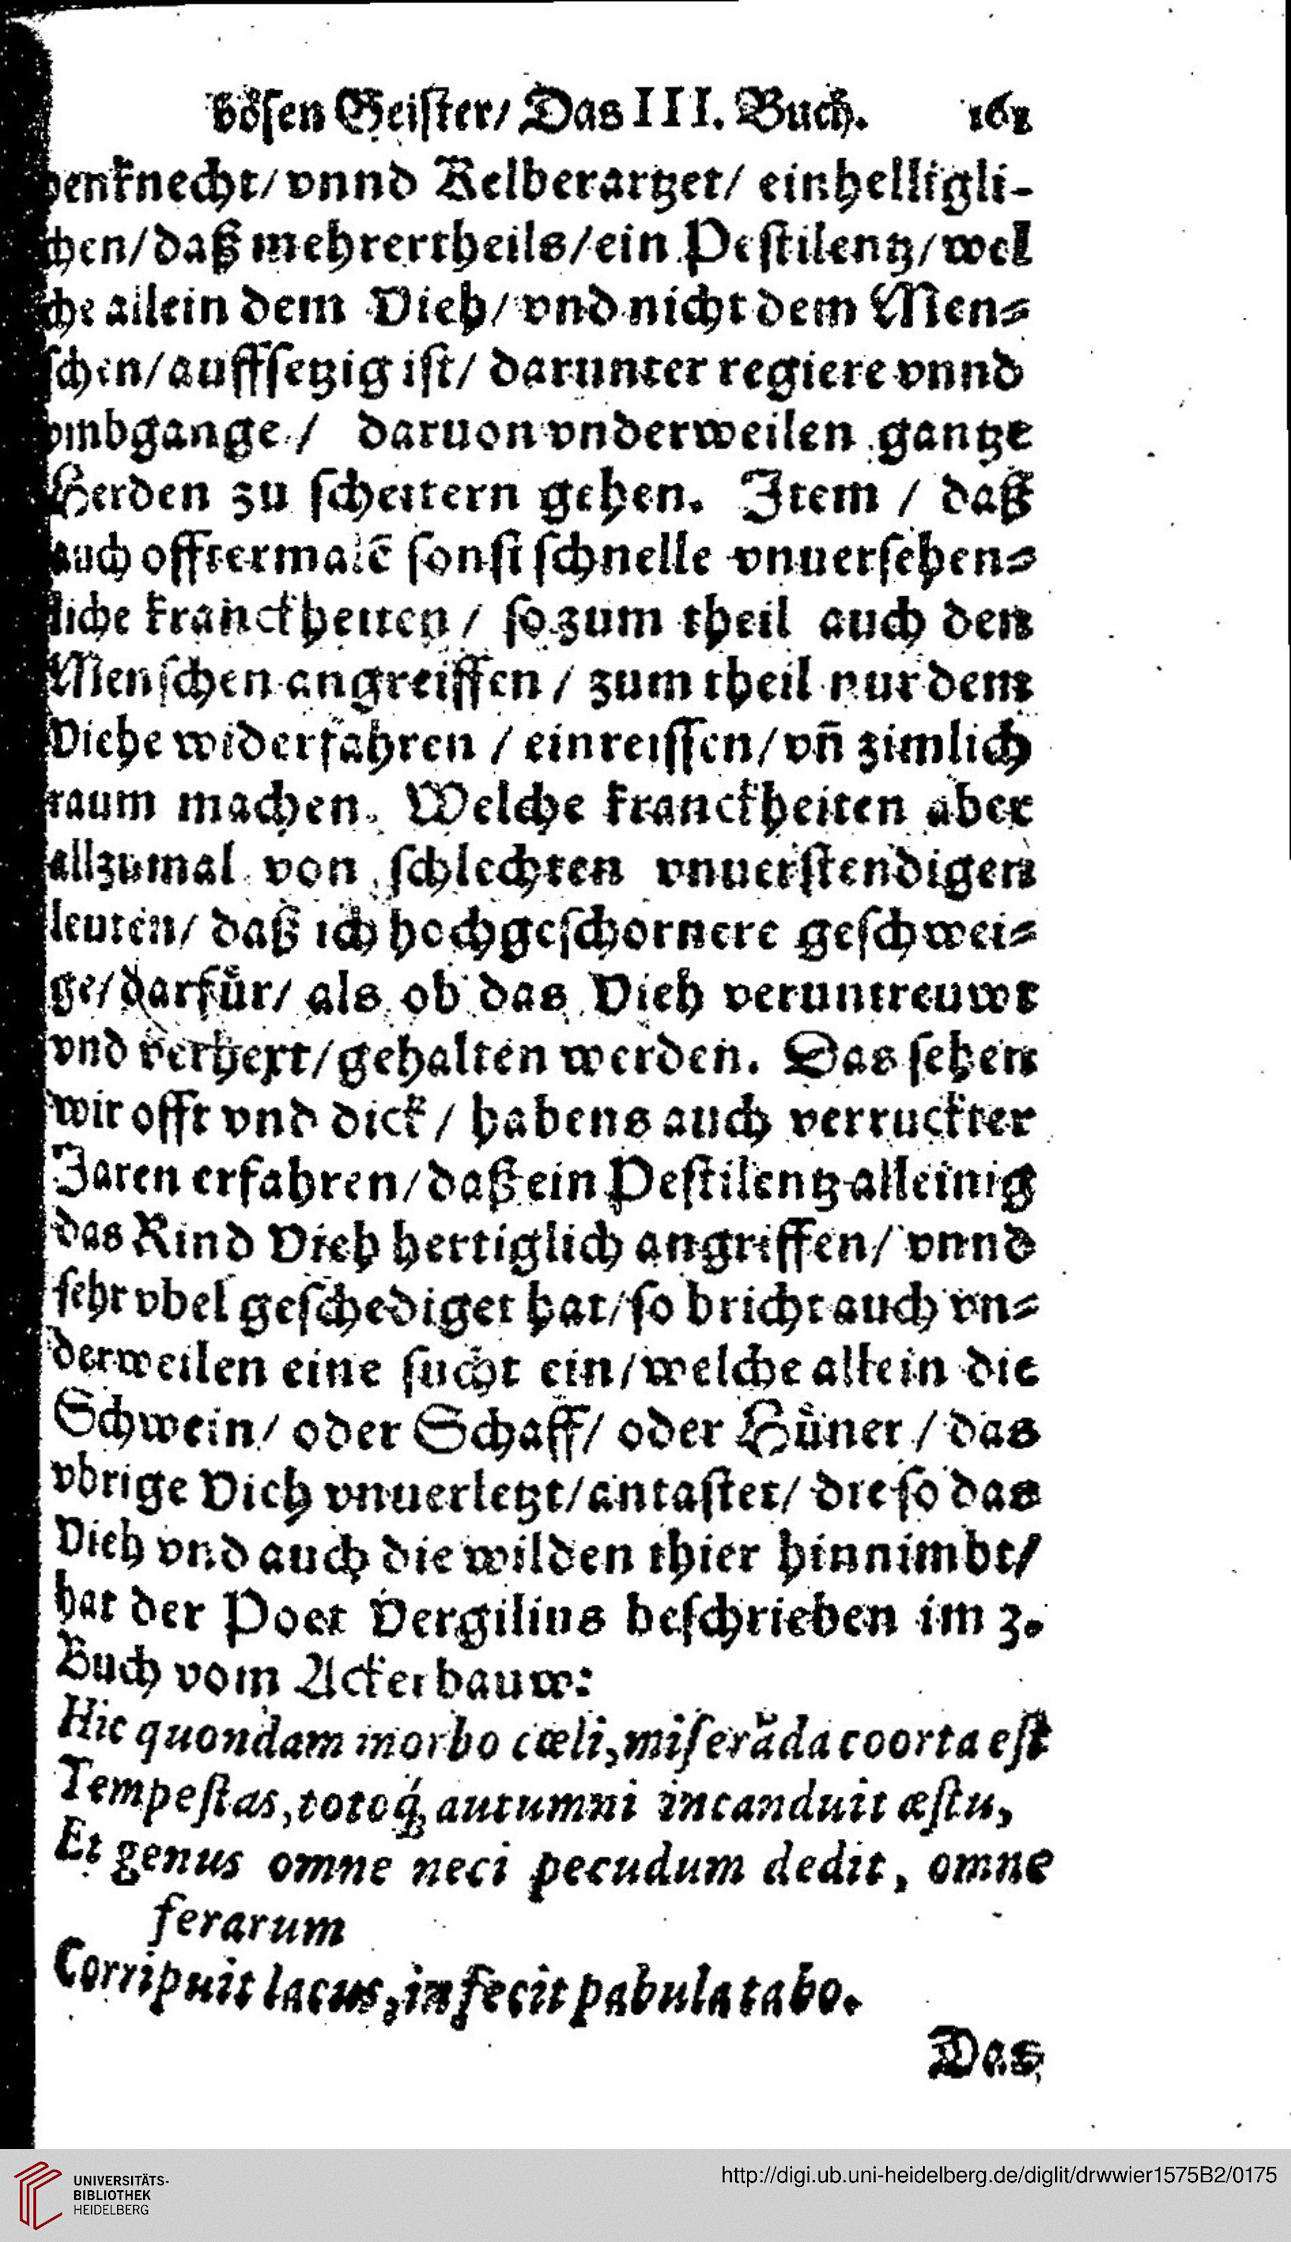 bösen Geister/ Das III. Buch. 161
benknecht/ vnnd Kelberartzet/ einhelligli-
chen/ daß mehrertheils/ ein Pestilentz/ wel
che allein dem Vieh/ vnd nicht dem Men-
schen/ auffsetzig ist/ darunter regiere vnnd
vmbgange / daruon vnderweilen gantze
Herden zu scheitern gehen. Item / daß
auch offtermalē sonst schnelle vnuersehen-
liche kranckheiten / so zum theil auch den
Menschen angreiffen / zum theil nur dem
Viehe widerfahren / einreissen/ vñ zimlich
raum machen. Welche kranckheiten aber
allzumal von schlechten vnuerstendigen
leuten/ daß ich hochgeschornere geschwei-
ge/ darfür/ als ob das Vieh veruntreuwt
vnd verhext/ gehalten werden. Das sehen
wir offt vnd dick / habens auch verruckter
Jaren erfahren/ daß ein Pestilentz alleinig
das Rind Vieh hertiglich angriffen/ vnnd
sehr vbel geschediget hat/ so bricht auch vn-
derweilen eine sucht ein/ welche allein die
Schwein/ oder Schaff/ oder Hüner / das
vbrige Vieh vnuerletzt/ antastet/ die so das
Vieh vnd auch die wilden thier hinnimbt/
hat der Poet Vergilius beschrieben im 3.
Buch vom Ackerbauw:
Hic quondam morbo cœli, miserāda coorta est
Tempestas, totoq́; autumni incanduit æstu,
Et genus omne neci pecudum dedit, omne
ferarum
Corripuit lacus, infecit pabula tabo.
Das
UNIVERSITÄTS-
BIBLIOTHEK
HEIDELBERG
http://digi.ub.uni-heidelberg.de/diglit/drwwier1575B2/0175